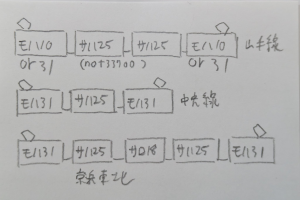 モハ10 サハ25 サハ25 モハ10 山手線
or 31 (not 33700) or 31
モハ31 サハ25 モハ31 中央線
モハ31 サハ25 サロ18 サハ25 モハ31
京浜東北